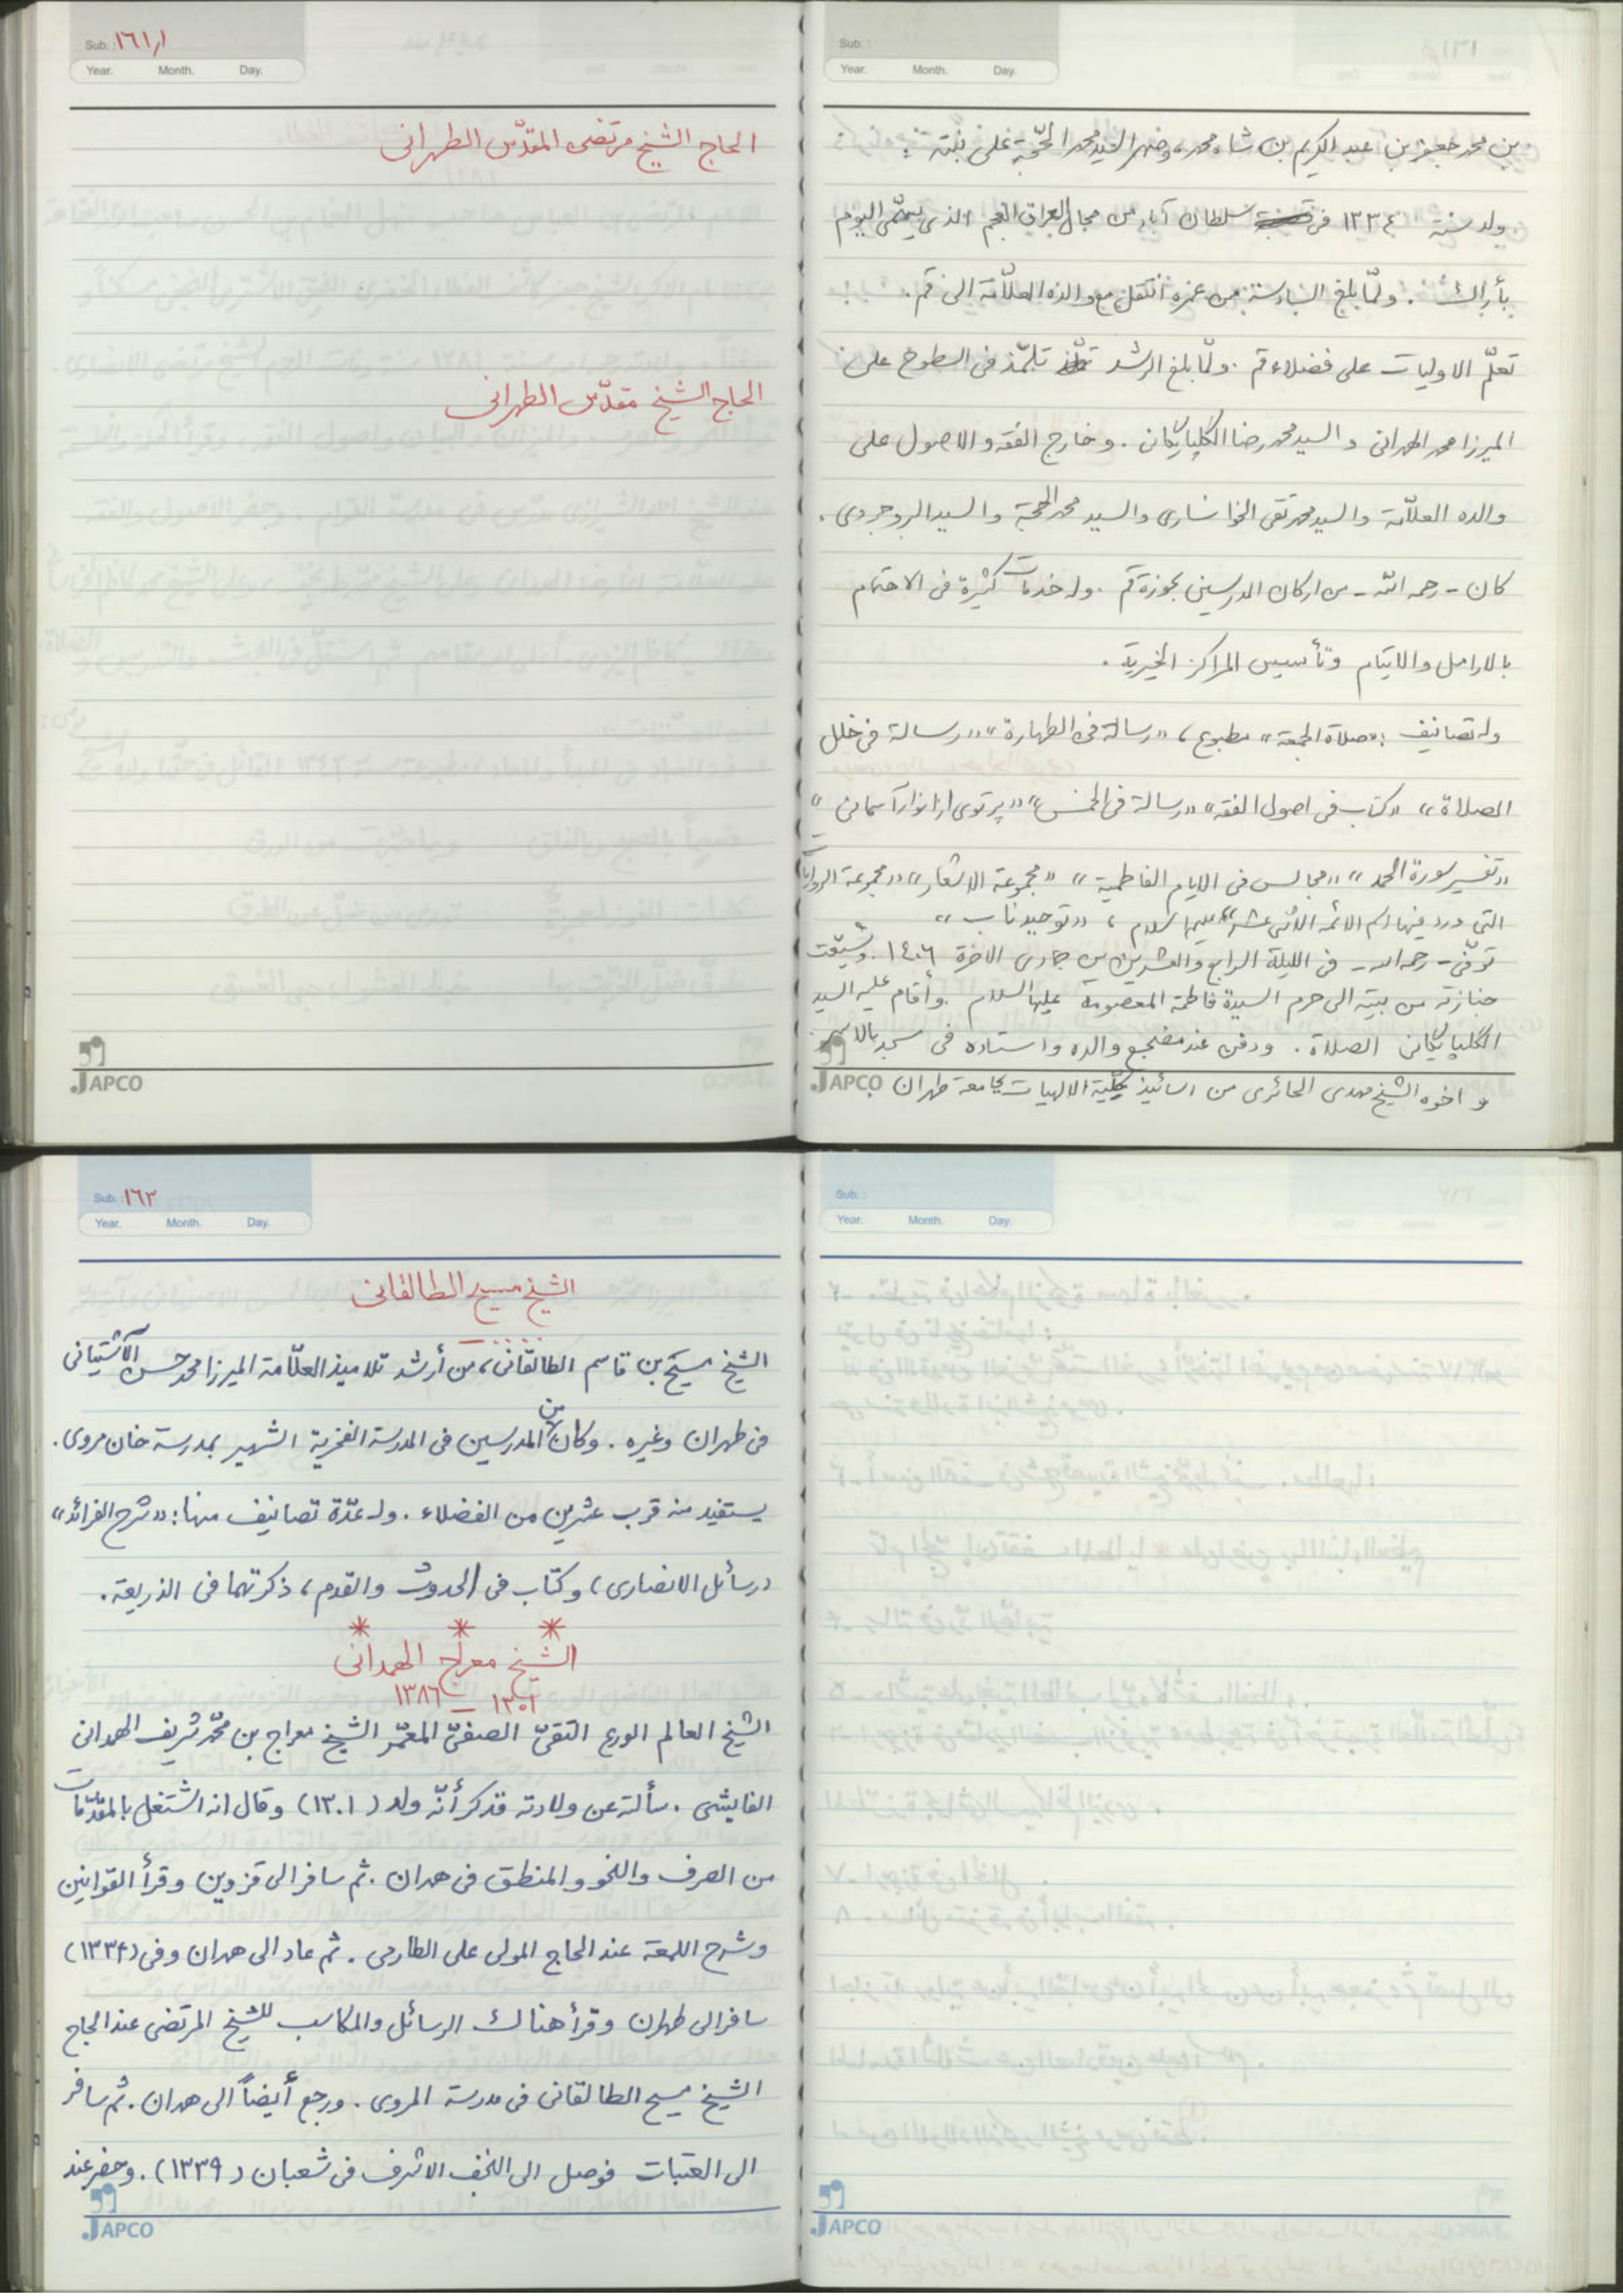 Sub. :
Year. Month. Day.
بن محمد جعفر بن عبد الكريم بن شاه محمد، وصهر السيد محمد الحجّة على بنته :
ولد سنة ١٣٣٤ في سلطان آباد من محال العراق العجم الذي يسمّى اليوم
بأراك . ولمّا بلغ السادسة من عمره انتقل مع والده العلّامة الى قم .
تعلّم الاوليات على فضلاء قم . ولمّا بلغ الرشد تلمّذ في السطوح على
الميرزا محمد الهمداني والسيد محمد رضا الگلپايگاني . وخارج الفقه والاصول على
والده العلّامة والسيد محمد تقي الخوانساري والسيد محمد الحجة والسيد البروجردي .
كان - رحمه الله - من اركان المدرسين بحوزة قم . وله خدمات كثيرة في الاهتمام
بالارامل والايتام وتأسيس المراكز الخيرية .
وله تصانيف : «صلاة الجمعة» مطبوع، «رسالة في الطهارة» «رسالة في خلل
الصلاة» «كتاب في اصول الفقه» «رسالة في الخمس» «پرتوى از انوار آسمانى»
«تفسير سورة الحمد» «مجالس في الايام الفاطمية» «مجموعة الاشعار» «مجموعة الروايات
التي ورد فيها اسم الائمه الاثني عشر عليهم السلام، «توحيد ناب»
توفّي - رحمه الله - في الليلة الرابع والعشرين من جمادى الاخرة ١٤٠٦ . وشيّعت
جنازته من بيته الى حرم السيدة فاطمة المعصومة عليها السلام . وأقام عليه السيد
الگلپايگاني الصلاة . ودفن عند مضجع والده واستاده في مسجد بالاسر .
و اخوه الشيخ مهدي الحائري من اساتيذ كلّية الالهيات بجامعة طهران
JAPCO
Sub. : ١٦١/١
Year. Month. Day.
الحاج الشيخ مرتضى المقدّس الطهرانى
الحاج الشيخ مقدّس الطهرانى
JAPCO
Sub. :
Year. Month. Day.
JAPCO
Sub. : ١٦٢
Year. Month. Day.
الشيخ مسيح الطالقانى
الشيخ مسيح بن قاسم الطالقانى، من أرشد تلاميذ العلّامة الميرزا محمد حسن الآشتيانى
فى طهران وغيره . وكان من المدرسين فى المدرسة الفخرية الشهير بمدرسة خان مروى .
يستفيد منه قرب عشرين من الفضلاء . وله عدّة تصانيف منها : «شرح الفرائد»
(رسائل الانصارى)، وكتاب فى الحدوث والقدم، ذكرتهما فى الذريعة .
* * *
الشيخ معراج الهمدانى
١٣٠١ – ١٣٨٦
الشيخ العالم الورع التقىّ الصفىّ المعمّر الشيخ معراج بن محمّد شريف الهمدانى
الفايشى . سألته عن ولادته فذكر أنّه ولد (١٣٠١) وقال انه اشتغل بالمقدّمات
من الصرف والنحو والمنطق فى همدان . ثم سافر الى قزوين وقرأ القوانين
وشرح اللمعة عند الحاج المولى على الطارمى . ثم عاد الى همدان وفى (١٣٣٤)
سافر الى طهران وقرأ هناك الرسائل والمكاسب للشيخ المرتضى عند الحاج
الشيخ مسيح الطالقانى فى مدرسة المروى . ورجع أيضاً الى همدان . ثم سافر
الى العتبات فوصل الى النجف الاشرف فى شعبان (١٣٣٩) . وحضر عند
JAPCO